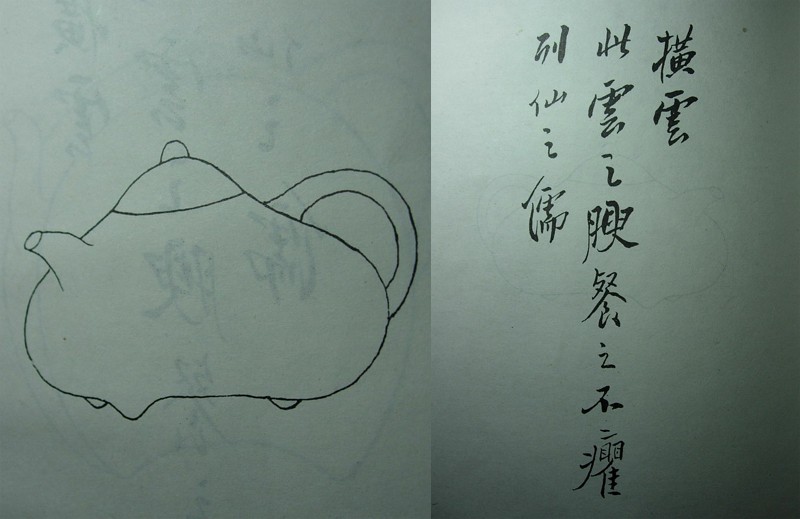 橫雲
此雲之腴餐之不癯
列仙之儒